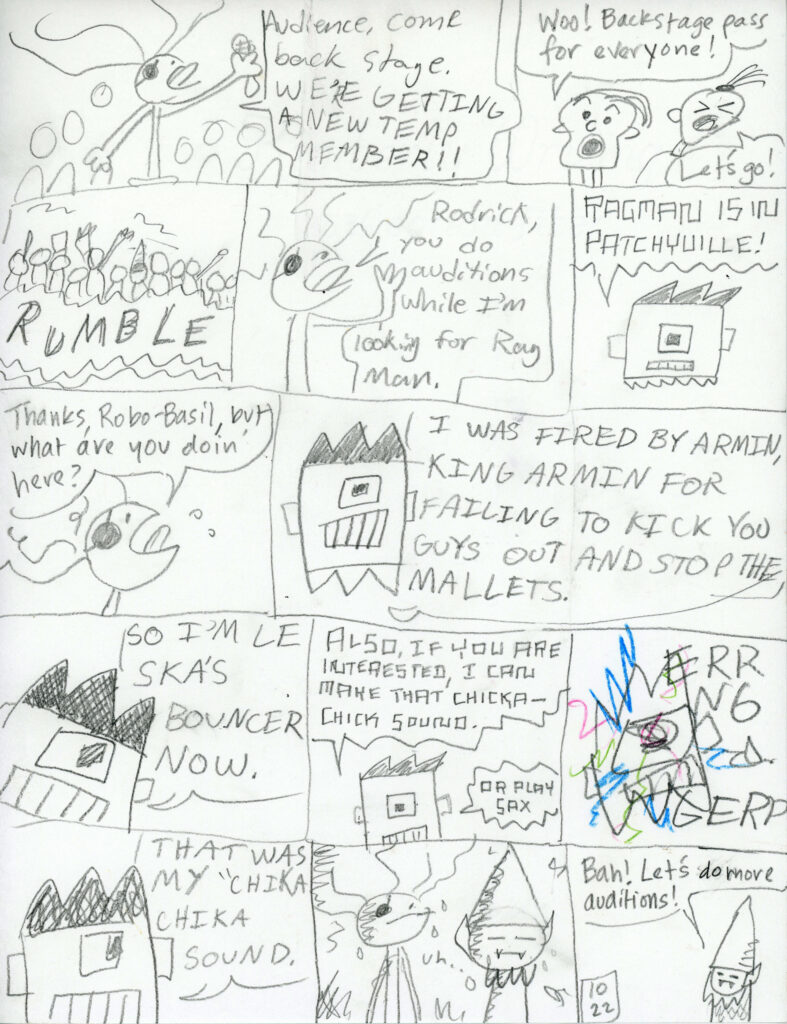 Audience, come
back stage.
WE'RE GETTING
A NEW TEMP
MEMBER!!
Woo! Backstage pass
for everyone!
Let's go!
RUMBLE
Rodrick,
you do
auditions
while I'm
looking for Rag
Man.
RAGMAN IS IN
PATCHYVILLE!
Thanks, Robo-Basil, but
what are you doin'
here?
I WAS FIRED BY ARMIN,
KING ARMIN FOR
FAILING TO KICK YOU
GUYS OUT AND STOP THE
MALLETS.
SO I'M LE
SKA'S
BOUNCER
NOW.
ALSO, IF YOU ARE
INTERESTED, I CAN
MAKE THAT CHICKA-
CHICK SOUND.
OR PLAY
SAX
ERR
NG
GERP
THAT WAS
MY "CHIKA
CHIKA
SOUND.
uh...
Bah! Let's do more
auditions!
10
22